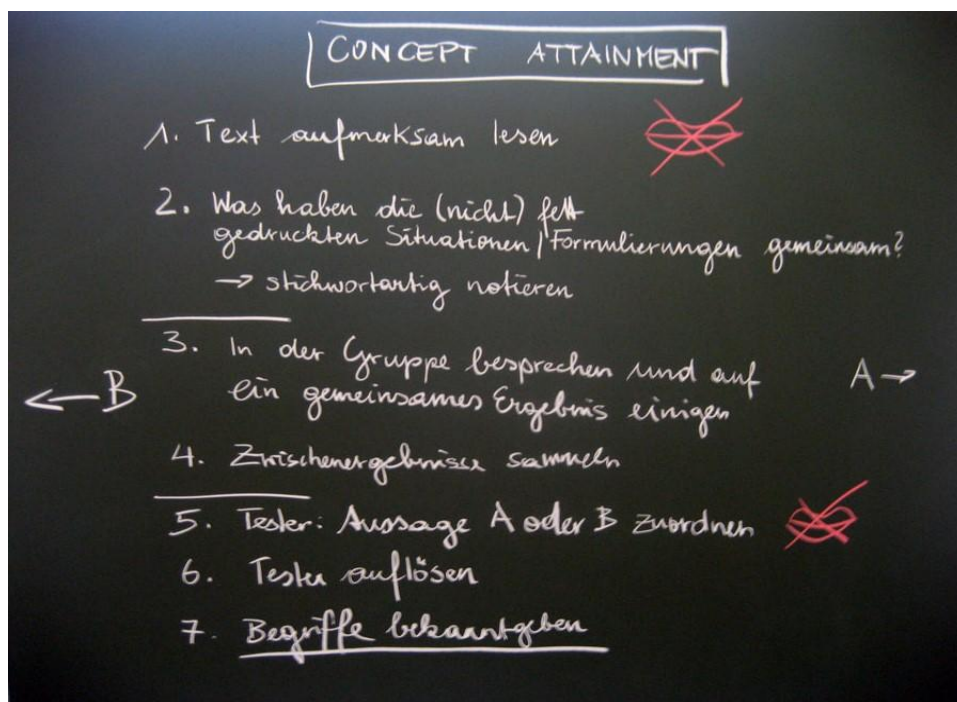 CONCEPT ATTAINMENT
1. Text aufmerksam lesen
2. Was haben die (nicht) fett
gedruckten Situationen / Formulierungen gemeinsam?
→ stichwortartig notieren
3. In der Gruppe besprechen und auf
ein gemeinsames Ergebnis einigen
← B
A →
4. Zwischenergebnisse sammeln
5. Tester: Aussage A oder B zuordnen
6. Tester auflösen
7. Begriffe bekanntgeben